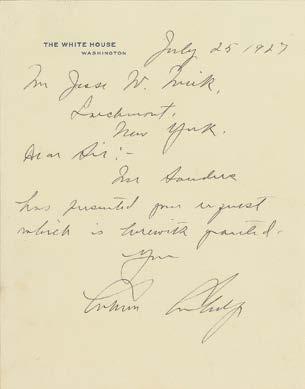 THE WHITE HOUSE
WASHINGTON
July 25 1927
Mr Jesse W.
Larchmont,
New York.
Dear Sir:-
Mr Sanders
has presented your request
which is herewith granted.
Yours
Calvin Coolidge